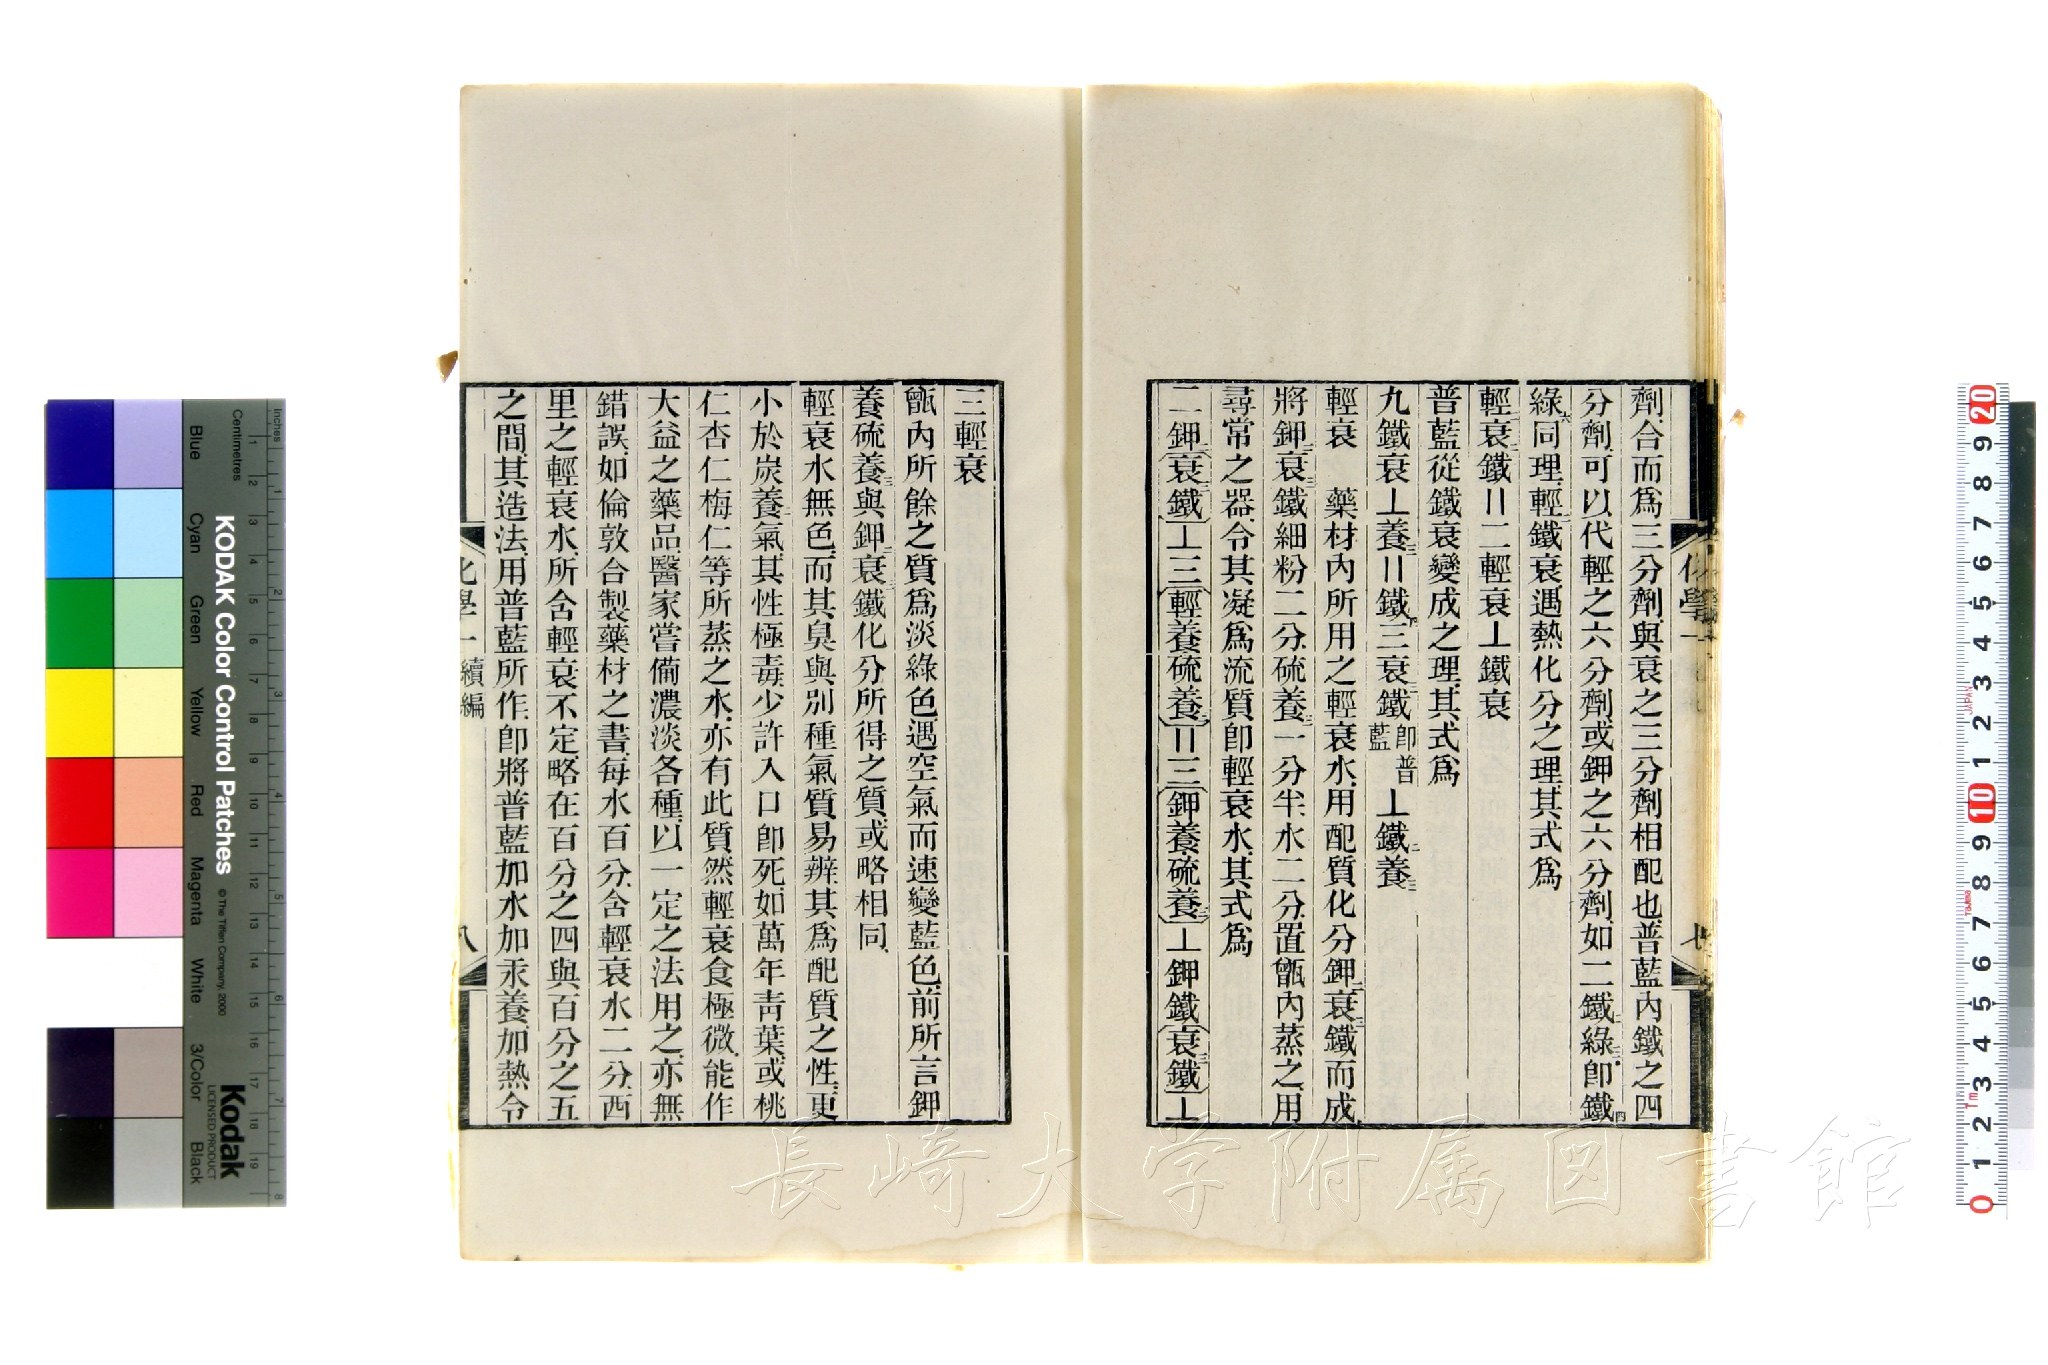 劑合而爲三分劑與衰之三分劑相配也普藍內鐵之四
分劑可以代輕之六分劑或鉀之六分劑如二鐵二綠三卽鐵四
綠六同理輕二鐵衰三遇熱化分之理其式爲
輕二衰三鐵〢二輕衰⊥鐵衰
普藍從鐵衰變成之理其式爲
九鐵衰⊥養三〢鐵四三衰三鐵卽普藍⊥鐵二養三
輕衰　藥材內所用之輕衰水用配質化分鉀二衰三鐵而成
將鉀二衰三鐵細粉二分硫養三一分半水二分置甑內蒸之用
尋常之器令其凝爲流質卽輕衰水其式爲
二鉀二衰三鐵⊥三輕養硫養三〢三鉀養硫養三⊥鉀鐵衰三鐵⊥
化學一
七
三輕衰
甑內所餘之質爲淡綠色遇空氣而速變藍色前所言鉀
養硫養三與鉀二衰三鐵化分所得之質或略相同
輕衰水無色而其臭與別種氣質易辨其爲配質之性更
小於炭養二氣其性極毒少許入口卽死如萬年靑葉或桃
仁杏仁梅仁等所蒸之水亦有此質然輕衰食極微能作
大益之藥品醫家嘗備濃淡各種以一定之法用之亦無
錯誤如倫敦合製藥材之書每水百分含輕衰水二分西
里之輕衰水所含輕衰不定略在百分之四與百分之五
之間其造法用普藍所作卽將普藍加水加汞養加熱令
化學一 續編
八
長崎大学附属図書館
Inches
Centimetres
KODAK Color Control Patches
© The Tiffen Company, 2000
Kodak
LICENSED PRODUCT
Blue
Cyan
Green
Yellow
Red
Magenta
White
3/Color
Black